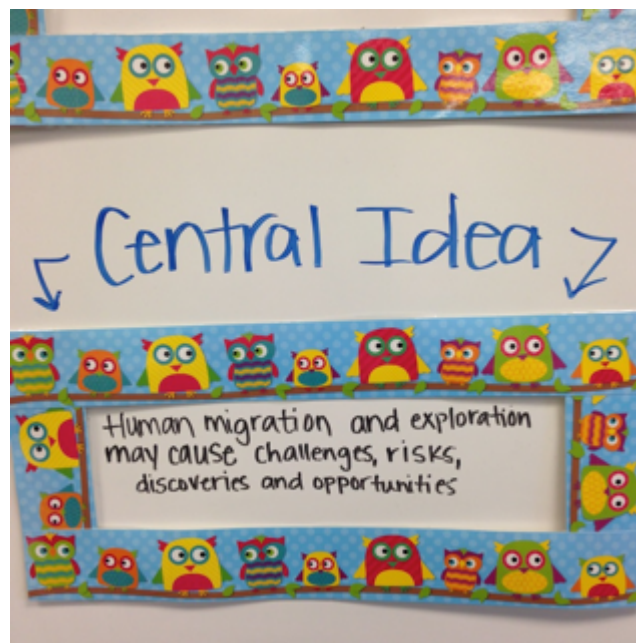 Central Idea
Human migration and exploration
may cause challenges, risks,
discoveries and opportunities